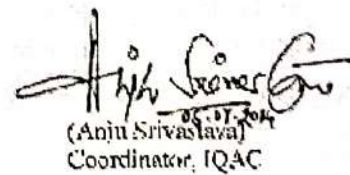 Anju Srivastava
05.07.2024
(Anju Srivastava)
Coordinator, IQAC